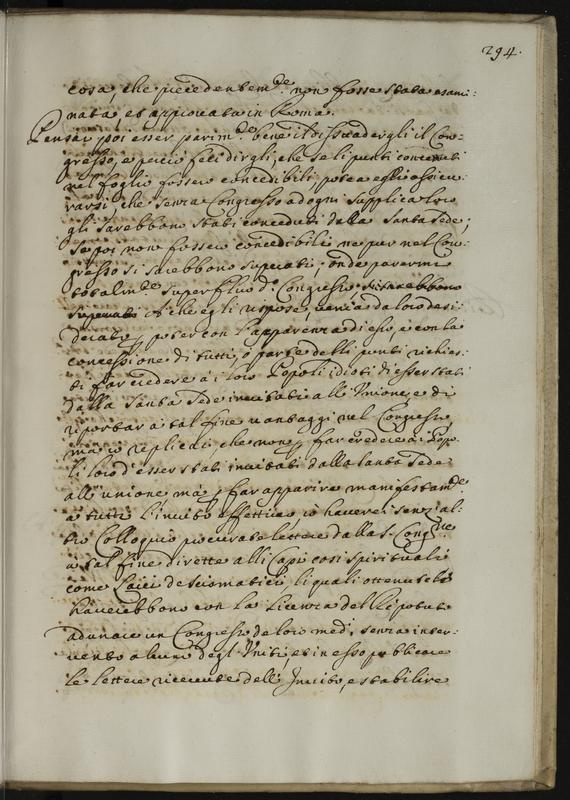 294.
cosa, che precedentem.te non fosse stata esami:
nata, et approvata in Roma.
Pensai poi esser parim.te bene il dissuadergli il Con:
gresso, e perciò feci dirgli, che se li punti contenuti
nel foglio fossero concedibili, potea egli assicu:
rarsi, che senza Congresso ad ogni supplica loro
gli sarebbono stati conceduti dalla Santa Sede;
se poi non fossero concedibili ne pur nel Con:
gresso si sarebbono superati; onde parermi
totalm.te superfluo d.o Congresso, si sarebbono
superati. Al che egli rispose, venir da loro desi:
derato p poter con l'apparenza di esso, e con la
concessione di tutti, ò parte delli punti richies:
ti far credere à i loro Popoli idioti di esser stati
dalla Santa Sede invitati all'Unione, e di
riportar à tal fine vantaggi nel Congresso,
ma io replicai, che non p far credere à i Popo:
li loro d'esser stati invitati dalla Santa Sede
all'unione mà p far apparire manifestam.te
à tutti l'invito effettivo, io haverei senz'al:
tro Colloquio procurate lettere dalla S. Cong.ne
à tal fine dirette alli Capi così spirituali
come Laici de Scismatici, li quali ottenutele
haverebbono con la Licenza del Rè potuto
adunare un Congresso de loro med.i senza inter:
vento alcuno degl'Uniti, et in esso publicare
le lettere ricevute dell'Invito, e stabilire